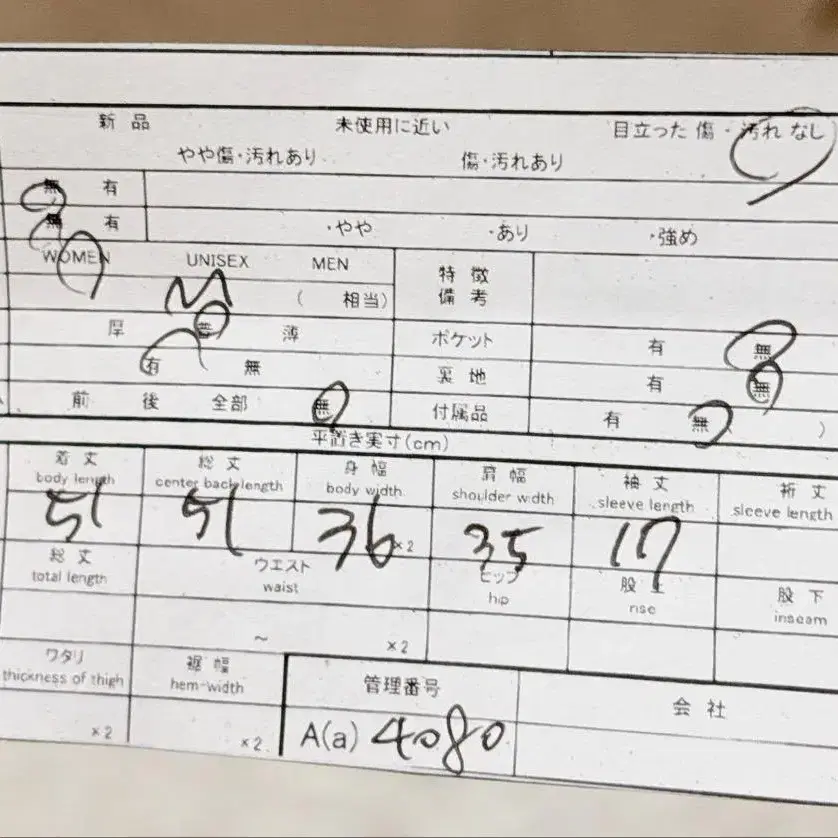 新品 未使用に近い 目立った傷・汚れなし
やや傷・汚れあり 傷・汚れあり
無 有
無 有 ・やや ・あり ・強め
WOMEN UNISEX MEN 特徴
備考
M ( 相当)
厚 普 薄 ポケット 有 無
有 無 裏地 有 無
前 後 全部 無 付属品 有 無 )
平置き実寸(cm)
着丈 総丈 身幅 肩幅 袖丈 裄丈
body length center back length body width shoulder width sleeve length sleeve length
51 51 36 ×2 35 17
総丈 ウエスト ヒップ 股上 股下
total length waist hip rise inseam
~ ×2
ワタリ 裾幅 管理番号 会社
thickness of thigh hem-width
×2 ×2 A(a) 4080